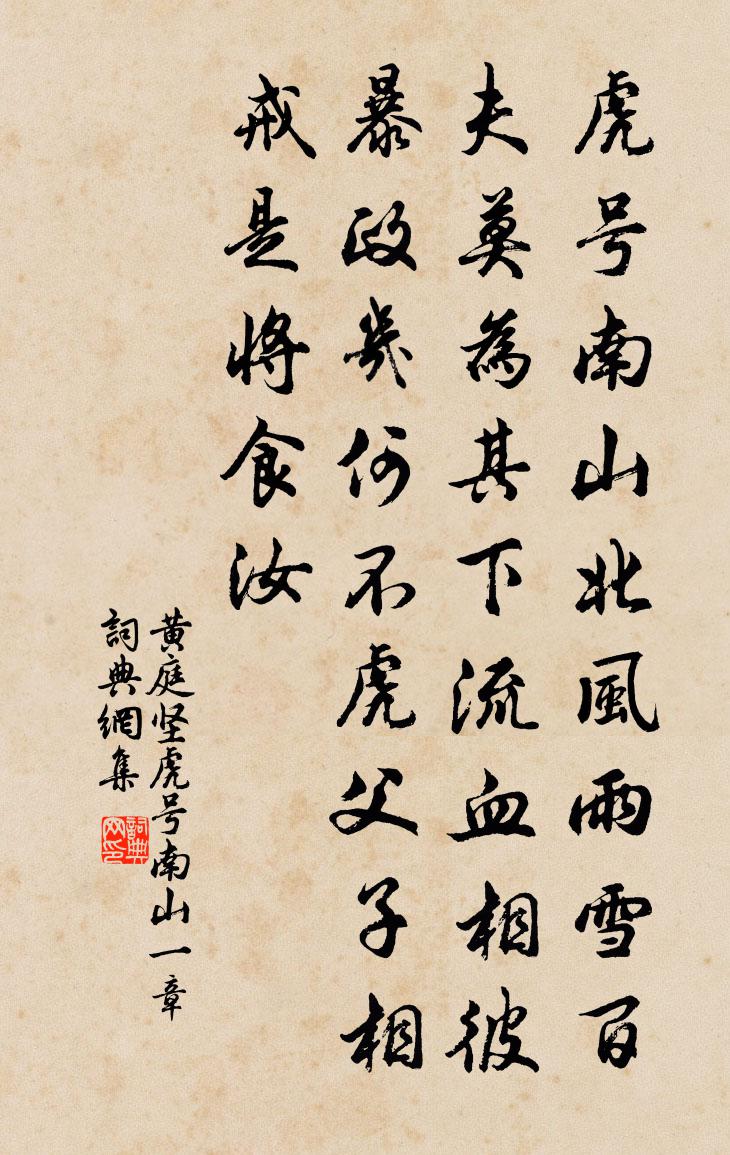 虎号南山北風雨雪百
夫莫為其下流血相彼
暴政幾何不虎父子相
戒是將食汝
黄庭坚虎号南山一章
詞典網集
詞典網印